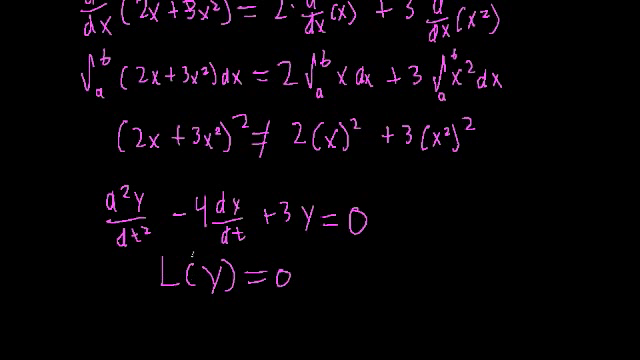 d/dx (2x + 3x²) = 2 · d/dx (x) + 3 d/dx (x²)
∫_a^b (2x + 3x²) dx = 2 ∫_a^b x dx + 3 ∫_a^b x² dx
(2x + 3x²)² ≠ 2(x)² + 3(x²)²
d²y/dt² - 4 dy/dt + 3y = 0
L(y) = 0